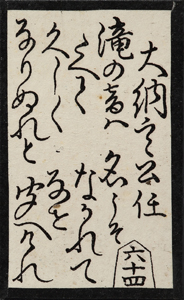 大納言公任
滝の音ハ
たえて
久しく
なりぬれと
名こそ
なかれて
なを
聞えけれ
六十四